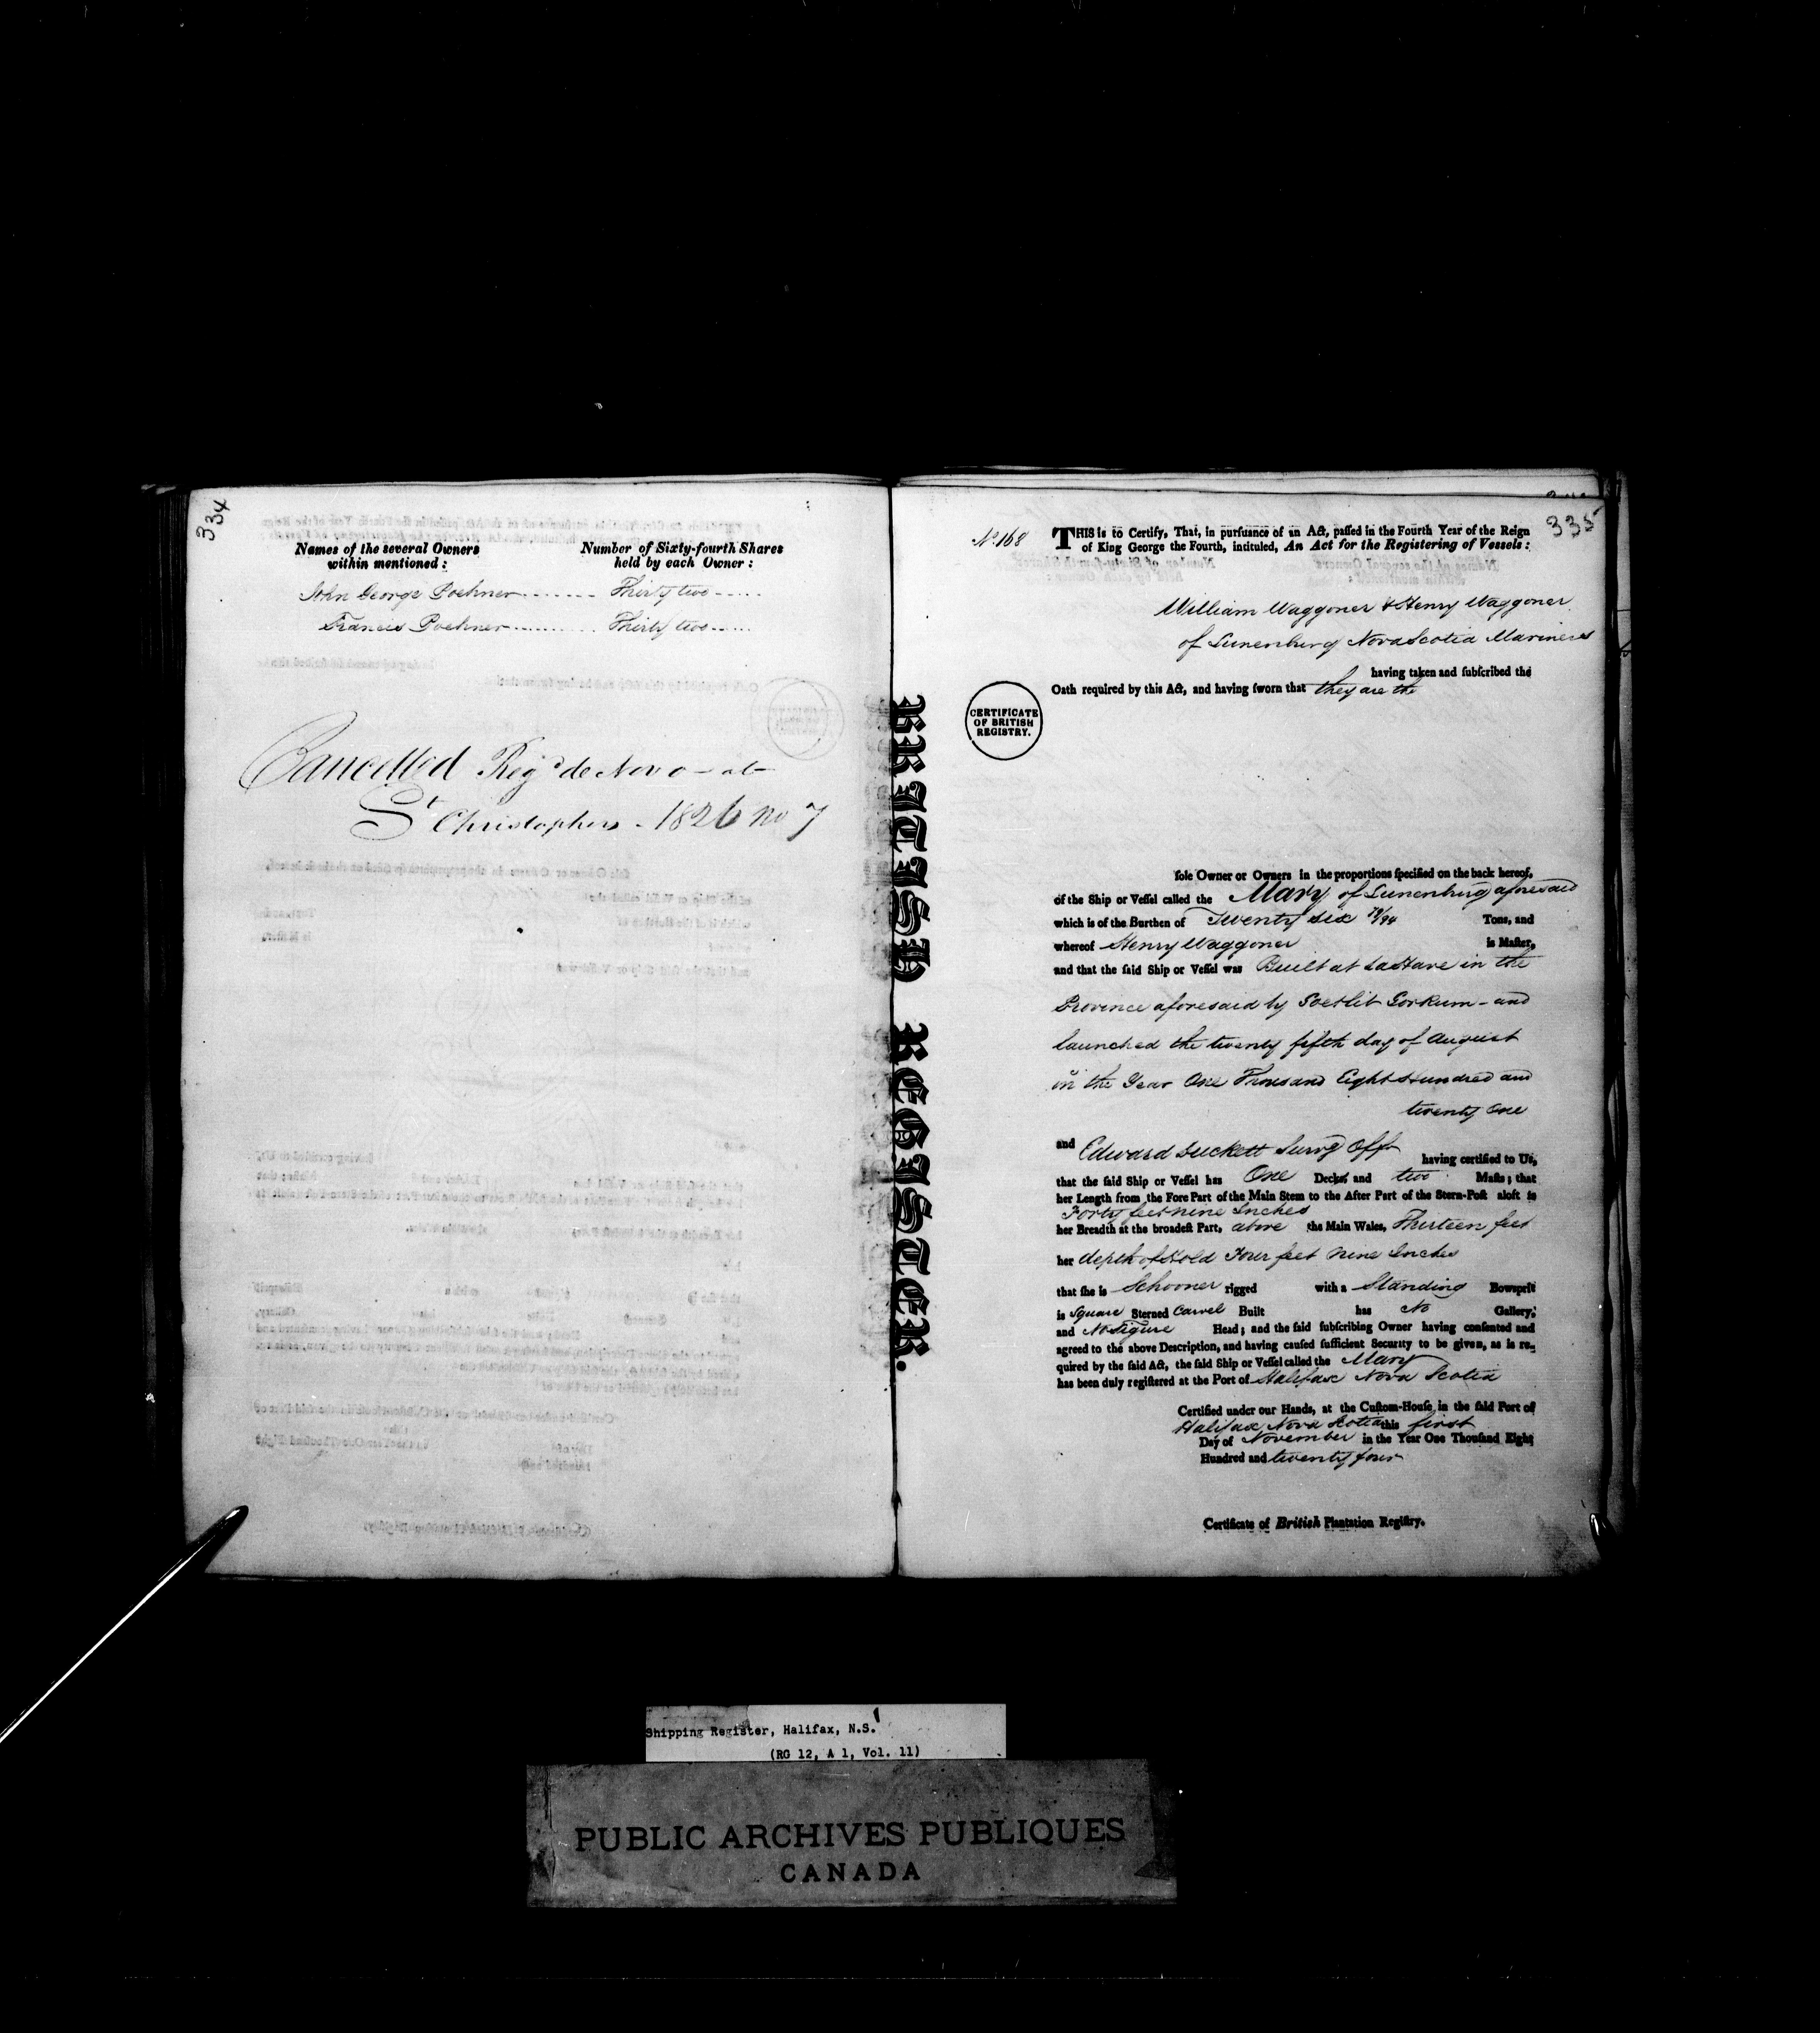 334
Names of the several Owners within mentioned :
Number of Sixty-fourth Shares held by each Owner :
John George Poehner ....... Thirty two .....
Francis Poehner .......... Thirty two .....
Cancelled Reg.d de Novo - at
St Christophers - 1826 No 7
BRITISH REGISTER.
335
No. 168
THIS is to Certify, That, in pursuance of an Act, passed in the Fourth Year of the Reign
of King George the Fourth, intituled, An Act for the Registering of Vessels:
William Waggoner & Henry Waggoner
of Lunenburg Nova Scotia Mariners
having taken and subscribed the
Oath required by this Act, and having sworn that they are the
CERTIFICATE
OF BRITISH
REGISTRY.
sole Owner or Owners in the proportions specified on the back hereof,
of the Ship or Vessel called the Mary of Lunenburg aforesaid
which is of the Burthen of Twenty six /94 Tons, and
whereof Henry Waggoner is Master,
and that the said Ship or Vessel was Built at LaHave in the
Province aforesaid by Gorkum - and
launched the twenty fifth day of August
in the Year One Thousand Eight Hundred and
twenty one
and Edward Duckett Survg Offr having certified to Us,
that the said Ship or Vessel has One Decks and two Masts; that
her Length from the Fore Part of the Main Stem to the After Part of the Stern-Post aloft is
Forty feet nine Inches
her Breadth at the broadest Part, above the Main Wales, Thirteen feet
her depth of Hold Four feet nine Inches
that she is Schooner rigged with a Standing Bowsprit
is Square Sterned Carvel Built has No Gallery,
and No Figure Head; and the said subscribing Owner having consented and
agreed to the above Description, and having caused sufficient Security to be given, as is re-
quired by the said Act, the said Ship or Vessel called the Mary
has been duly registered at the Port of Halifax Nova Scotia
Certified under our Hands, at the Custom-House in the said Port of
Halifax Nova Scotia this first
Day of November in the Year One Thousand Eight
Hundred and twenty four
Certificate of British Plantation Registry.
Shipping Register, Halifax, N.S.
(RG 12, A 1, Vol. 11)
PUBLIC ARCHIVES PUBLIQUES
CANADA